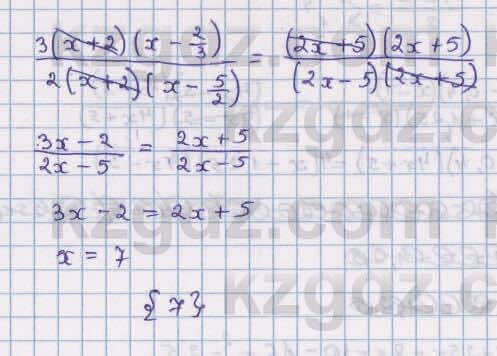 3(x+2)(x - 2/3) / 2(x+2)(x - 5/2) = (2x+5)(2x+5) / (2x-5)(2x+5)
3x-2 / 2x-5 = 2x+5 / 2x-5
3x-2 = 2x+5
x = 7
{7}
kzgdz.com